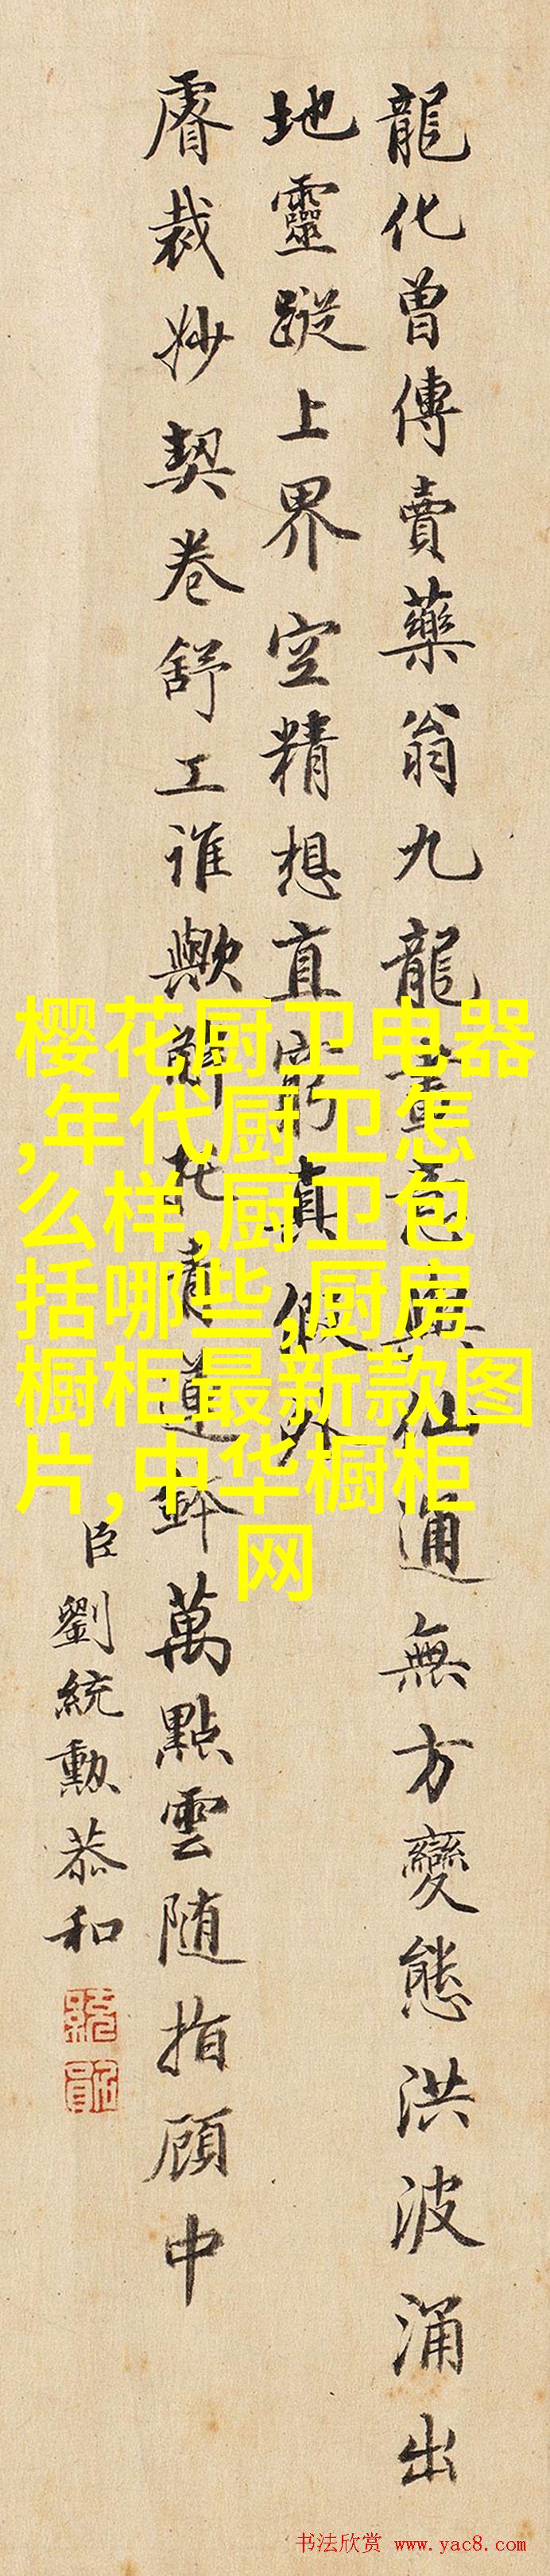 龍化曾傳賣藥翁九龍畫意與仙通無方變態洪波涌出
地靈蹤上界空精想直窮真假外
睿裁妙契卷舒工誰歟解托青蓮鉢萬點雲随指顧中
臣劉統勳恭和
樱花厨卫电器
,年代厨卫怎
么样,厨卫包
括哪些,厨房
橱柜最新款图
片,中华橱柜
网
书法欣赏 www.yac8.com